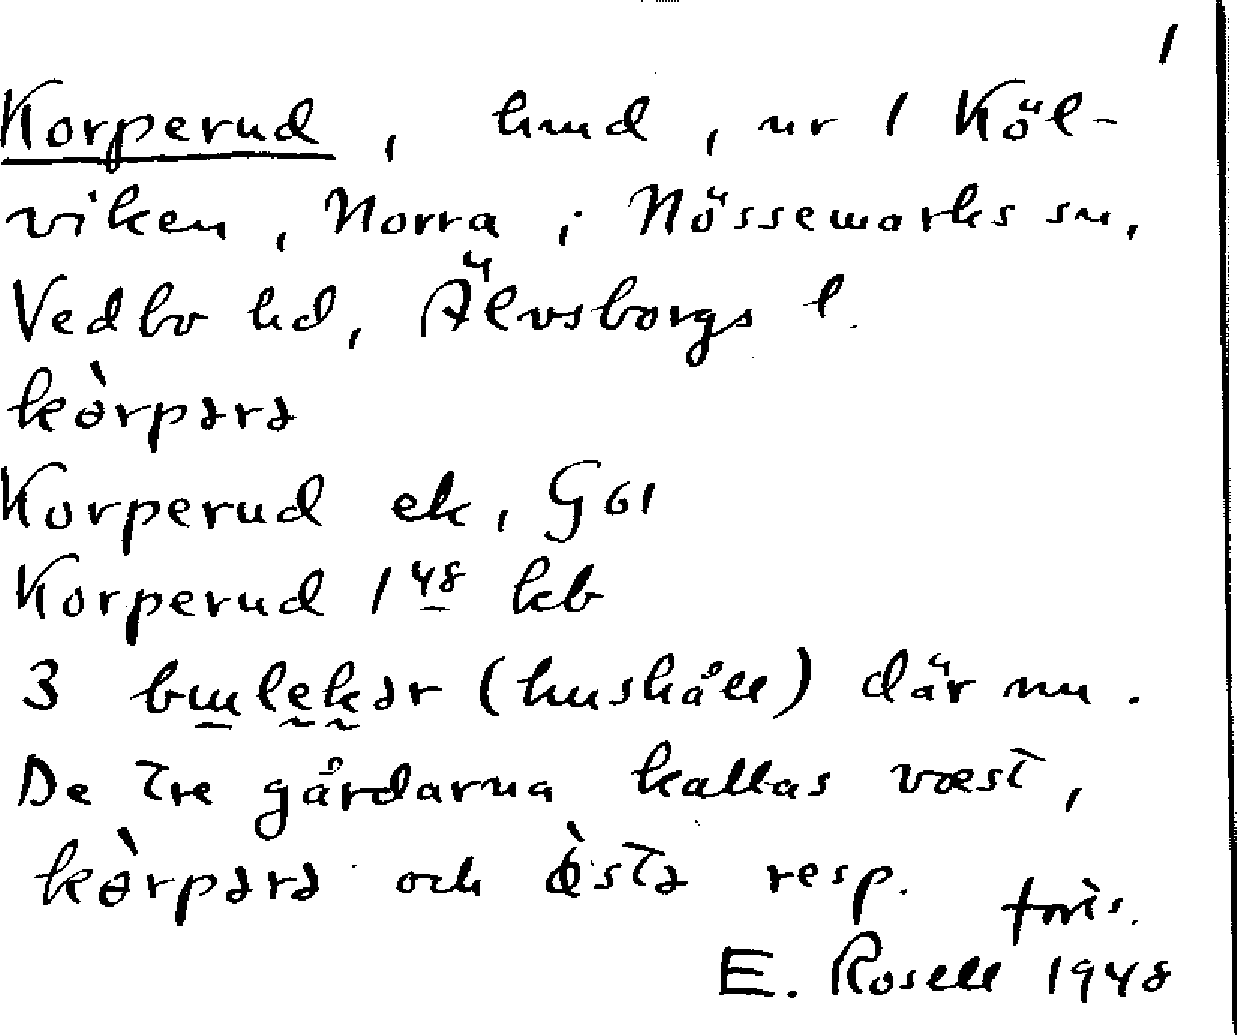 1
Korperud, hmd, nr 1 Köl-
viken, Norra, i Nössemarks sn,
Vedbo hd, Älvsborgs l.
kòrpərə
Korperud ek, G61
Korperud 1 48 kb
3 bruləkər (hushåll) där nu.
De tre gårdarna kallas væst,
kòrpərə och ø̀stə resp. forts.
E. Rosell 1948